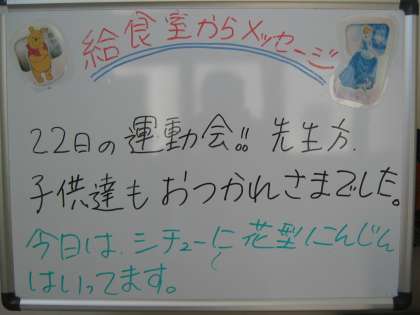 給食室からメッセージ
22日の運動会!! 先生方、
子供達もおつかれさまでした。
今日は、シチューに花型にんじん
はいってます。